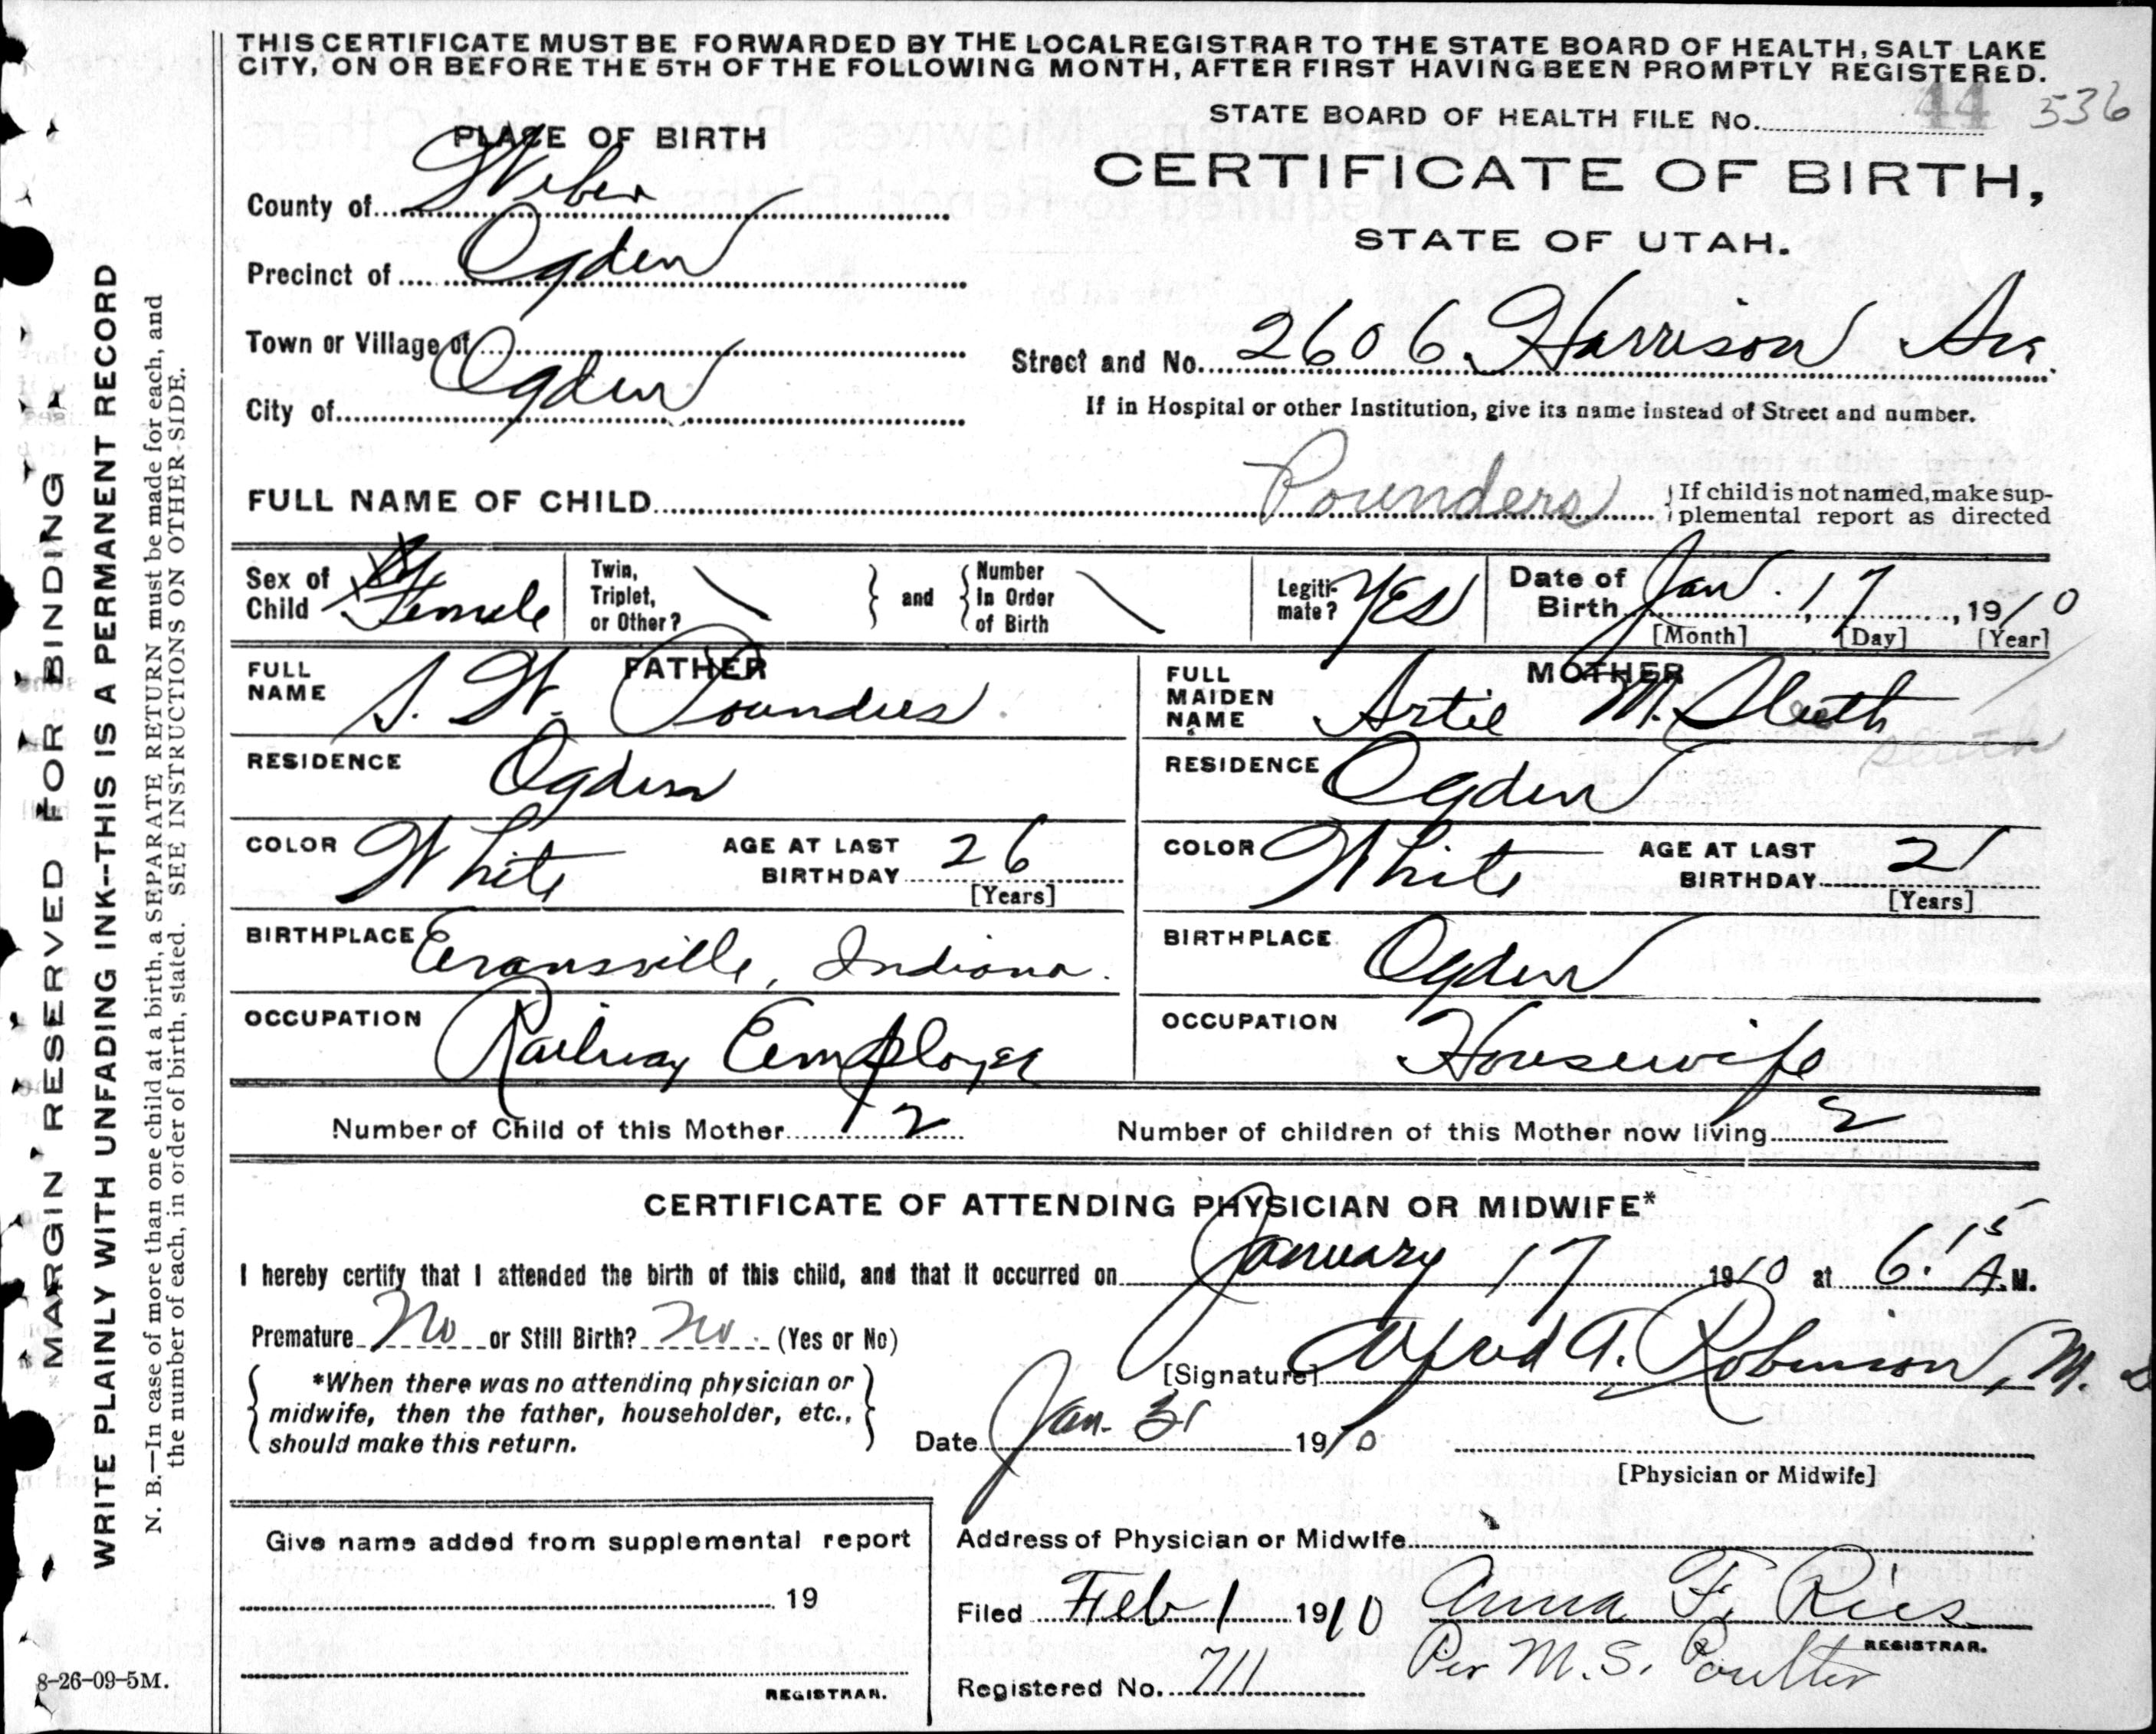 THIS CERTIFICATE MUST BE FORWARDED BY THE LOCAL REGISTRAR TO THE STATE BOARD OF HEALTH, SALT LAKE
CITY, ON OR BEFORE THE 5TH OF THE FOLLOWING MONTH, AFTER FIRST HAVING BEEN PROMPTLY REGISTERED.
STATE BOARD OF HEALTH FILE No. 44 536
PLACE OF BIRTH
CERTIFICATE OF BIRTH,
STATE OF UTAH.
County of Weber
Precinct of Ogden
Town or Village of
Street and No. 2606 Harrison Ave
City of Ogden
If in Hospital or other Institution, give its name instead of Street and number.
FULL NAME OF CHILD Pounders
{If child is not named, make sup-
plemental report as directed
Sex of Child Female
Twin, Triplet, or Other? \ } and { Number in Order of Birth \
Legiti-mate? Yes
Date of Birth Jan. 17, 1910
[Month] [Day] [Year]
FATHER
FULL NAME S. W. Pounders
MOTHER
FULL MAIDEN NAME Artie M. Sleeth
Sleeth
RESIDENCE Ogden
RESIDENCE Ogden
COLOR White AGE AT LAST BIRTHDAY 26 [Years]
COLOR White AGE AT LAST BIRTHDAY 21 [Years]
BIRTHPLACE Evansville, Indiana.
BIRTHPLACE Ogden
OCCUPATION Railway Employee
OCCUPATION Housewife
Number of Child of this Mother 2
Number of children of this Mother now living 2
CERTIFICATE OF ATTENDING PHYSICIAN OR MIDWIFE*
I hereby certify that I attended the birth of this child, and that it occurred on January 17 1910 at 6:15 A.M.
Premature No or Still Birth? No. (Yes or No)
[Signature] Alfred A. Robinson, M.D
*When there was no attending physician or
midwife, then the father, householder, etc.,
should make this return.
Date Jan. 31 1910
[Physician or Midwife]
Give name added from supplemental report
19
REGISTRAR.
Address of Physician or Midwife
Filed Feb 1 1910 Anna F. Ries
REGISTRAR.
Per M. S. Poulter
Registered No. 711
MARGIN RESERVED FOR BINDING
WRITE PLAINLY WITH UNFADING INK--THIS IS A PERMANENT RECORD
N. B.—In case of more than one child at a birth, a SEPARATE RETURN must be made for each, and
the number of each, in order of birth, stated. SEE INSTRUCTIONS ON OTHER SIDE.
8-26-09-5M.